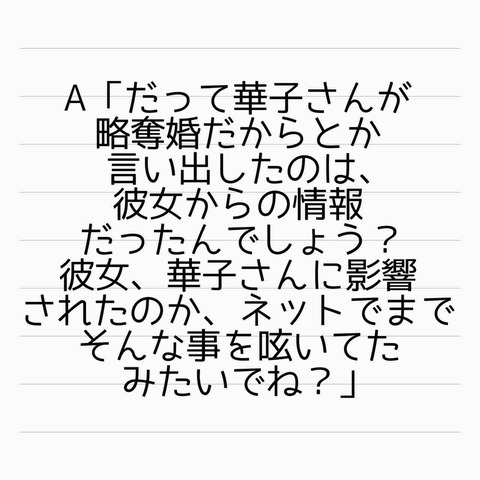 A「だって華子さんが
略奪婚だからとか
言い出したのは、
彼女からの情報
だったんでしょう?
彼女、華子さんに影響
されたのか、ネットでまで
そんな事を呟いてた
みたいでね?」